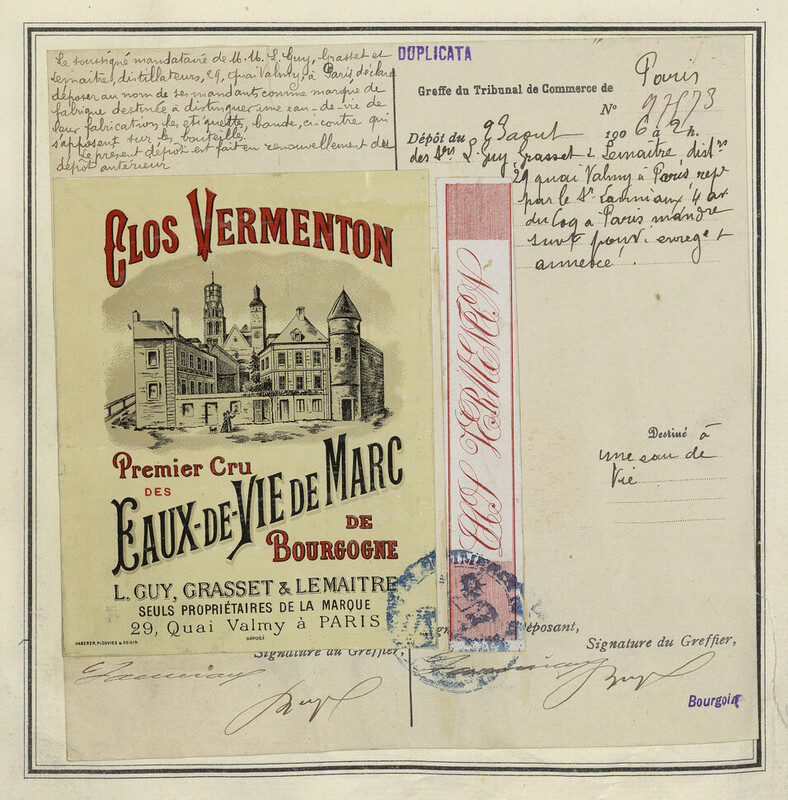 Le soussigné mandataire de M.M. L. Guy, Grasset et
Lemaitre, distillateurs, 29, quai Valmy, à Paris déclare
déposer au nom de ses mandants comme marque de
fabrique destinée à distinguer une eau-de-vie de
leur fabrication les étiquette, bande, ci contre qui
s'apposent sur les bouteilles.
Le présent dépôt est fait en renouvellement de
dépôt antérieur
DUPLICATA
Greffe du Tribunal de Commerce de Paris
N°
Dépôt du 9 aout 1906 à 2 h.
des Srs L. Guy, Grasset & Lemaitre, distrs
29 quai Valmy à Paris, rept
par le Sr 4 av.
du Coq à Paris mandre
suivt pouv. enregt
annexé.
CLOS VERMENTON
Premier Cru
DES
EAUX-DE-VIE DE MARC
DE
BOURGOGNE
L. GUY, GRASSET & LEMAITRE
SEULS PROPRIÉTAIRES DE LA MARQUE
29, Quai Valmy à PARIS
DÉPOSÉ
CLOS VERMENTON
Destiné à
une eau de
vie
Signature du Greffier,
déposant,
Signature du Greffier,
Bourgoin